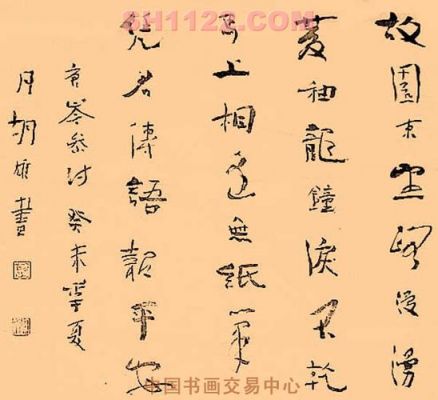 SH1122.COM
故園东望路漫漫
双袖龍鐘淚不乾
马上相逢無紙筆
凭君傳語報平安
唐岑参诗 癸未夏
月胡雄書
中国书画交易中心